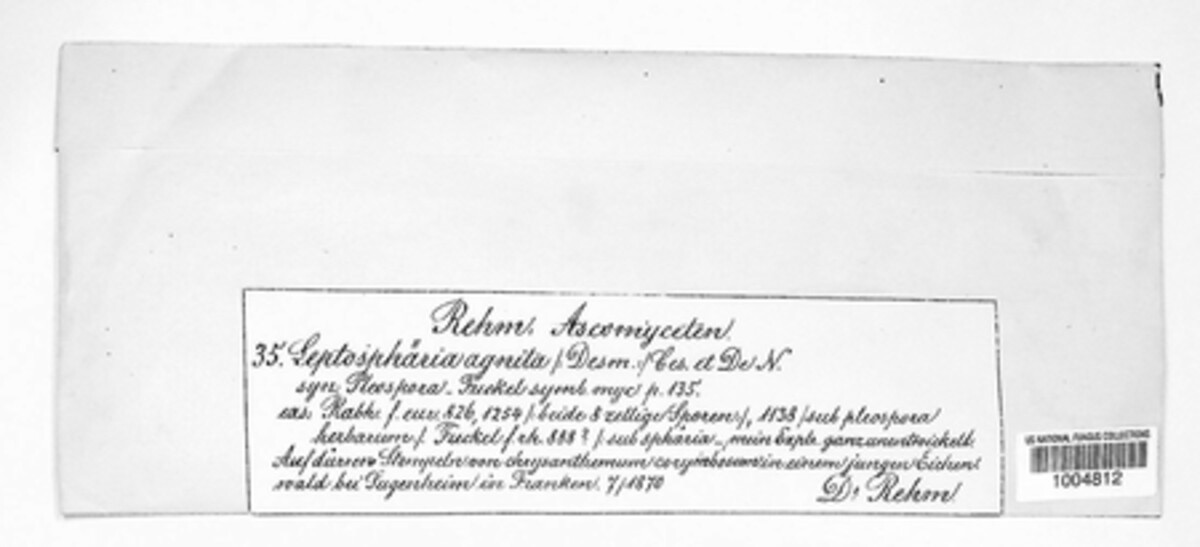 Rehm. Ascomyceten.
35. Leptosphäria agnita /: Desm. :/ Ces. et De N.
syn. Pleospora - Fuckel symb. myc p. 135.
exs. Rabh. f. eur. 826, 1254 /: beide 8 zellige Sporen :/, 1138 /: sub pleospora
herbarum /: Fuckel f. rh. 888? /: sub sphäria -, mein Explr. ganz unentwickelt.
Auf dürren Stengeln von chrysanthemum corymbosum in einem jungen Eichen
wald bei Sugenheim in Franken. 7/1870
Dr Rehm
US NATIONAL FUNGUS COLLECTIONS
1004812